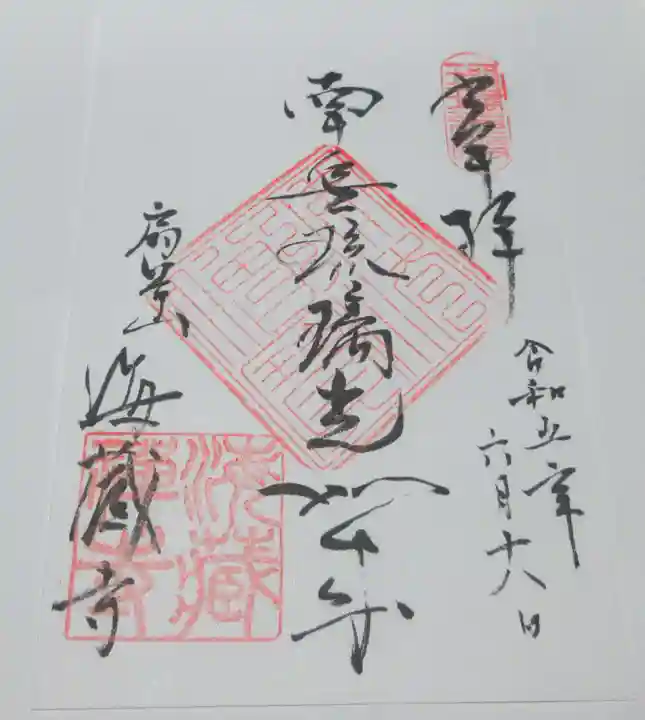 奉拝
令和五年
六月十八日
南無琉璃光如来
扇谷山
海蔵寺
海蔵
禅寺